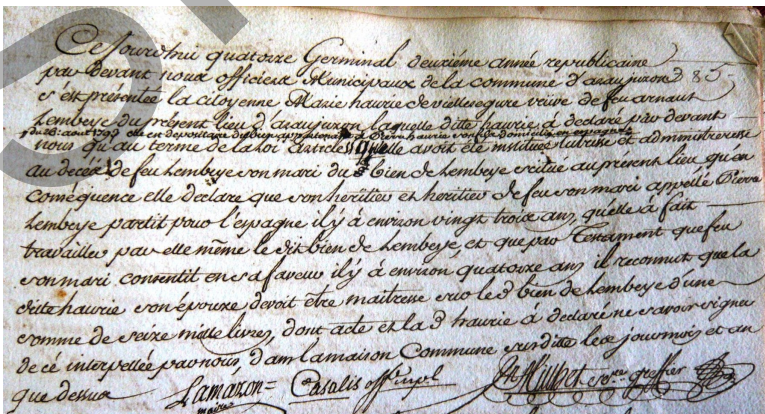 Ce Jourd'hui quatorze Germinal deuxiéme année republicaine
par devant nous officiers Municipaux de la commune d'araujuzon 85
s'est présentée la citoyenne Marie haurie de viellesegure veuve de feu arnaut
Lembeye du présent lieu d'araujuzon laquelle ditte haurie à declaré par devant
du 28 aout 1792 elle en depositaire du bien appartenant à Pierre haurie son fils dont elle en espagne
nous qu'au terme de la loi article elle avoit été instituée tutrise et administreresse
au décéz de feu Lembeye son mari du bien de Lembeye scitué au present lieu qu'en
conséquence elle declare que son heritier et heritier de feu son mari appéllé Pierre
Lembeye partit pour l'espagne il y à environ vingt trois ans, qu'elle à fait
travailler par elle même le dit bien de Lembeye et que par Testament que feu
son mari consentit en sa faveur il y à environ quatorze ans il reconnut que la
ditte haurie son épouze devoit être maitresse sur le d bien de Lembeye d'une
somme de seize mille livres, dont acte et la d haurie à declaré ne savoir signer
de cé interpellée par nous, dans la maison Commune surditte les jour mois et an
que dessus Lamazon = Casalis off. mpl greffier
maire